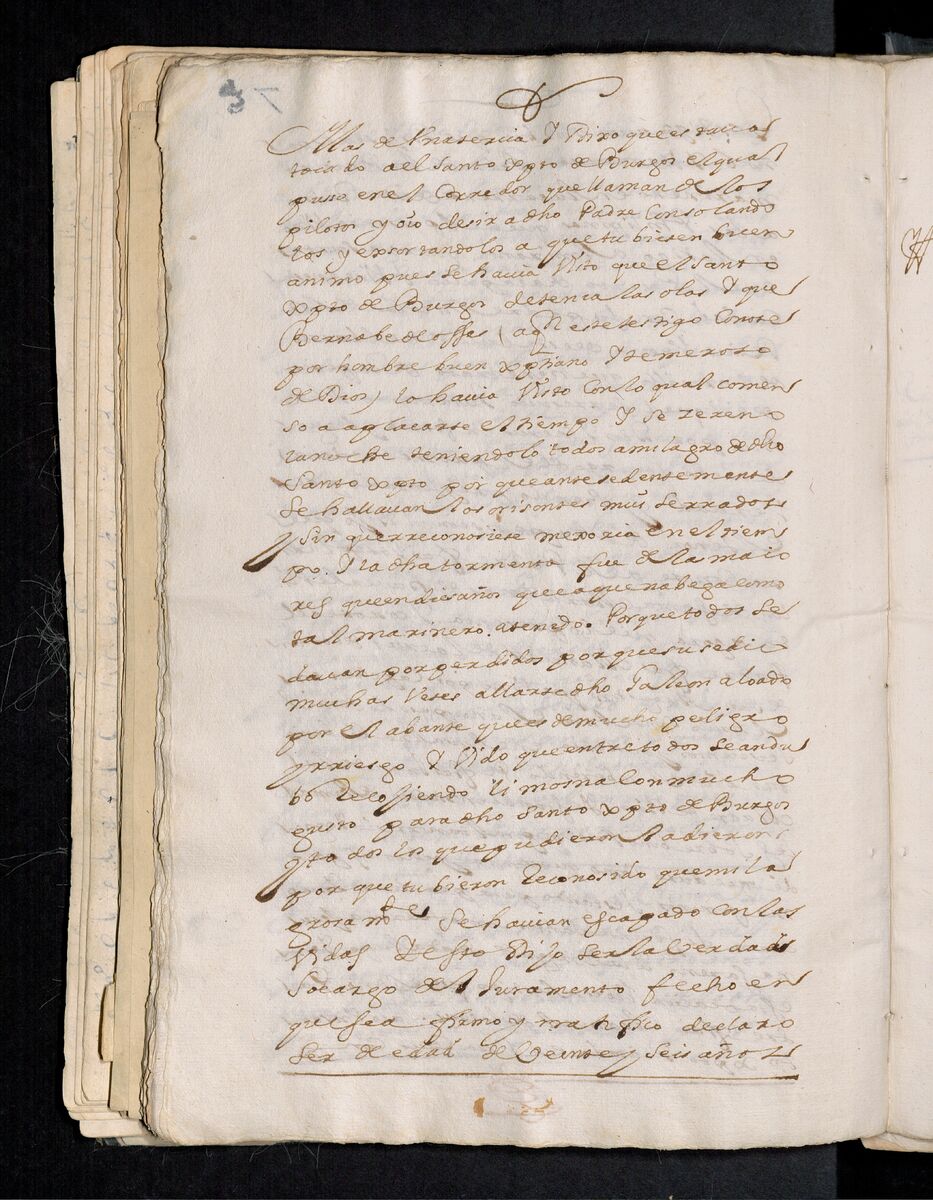 37
Mas de Una tercia Y Dixo que estava
tocado a el Santo xpto de Burgos el qual
puso en el Corredor que llaman de los
pilotos y oio desir a dho Padre Consolando
los y exsortandolos a que tu biesen buen
animo pues se havia Visto que el Santo
xpto de Burgos detenia las olas Y que
Bernabe de (a qn este testigo Conose
por hombre buen xptiano Y temeroso
de Dios) lo havia Visto Con lo qual comen
so a aplacarse el tiempo Y se zereno
la noche teniendolo todos a milagro de dho
Santo xpto por que antesedentemente
se hallavan los orisontes mui serrados
y sin que rreconosiese mexoria en el tiem
po. Y la dha tormenta fue de las maio
res que en dies años que a que nabega como
tal marinero. a tenido. Porque todos se
davan por perdidos por que susedio
muchas Veses allarse dho Galeon aloado
por el abante que es de mucho peligro
y rriesgo Y Vido que entre todos se andu
bo Recojiendo limosna Con mucho
gusto para dho Santo xpto de Burgos
y todos los que pudieron la dieron
por que tu bieron Reconosido que mila
grosa mte Se havian escapado con las
Vidas Y esto Dijo ser la Verdad
So cargo del Juramento fecho en
que se a firmo y rratifico declaro
Ser de edad de Veinte y seis años